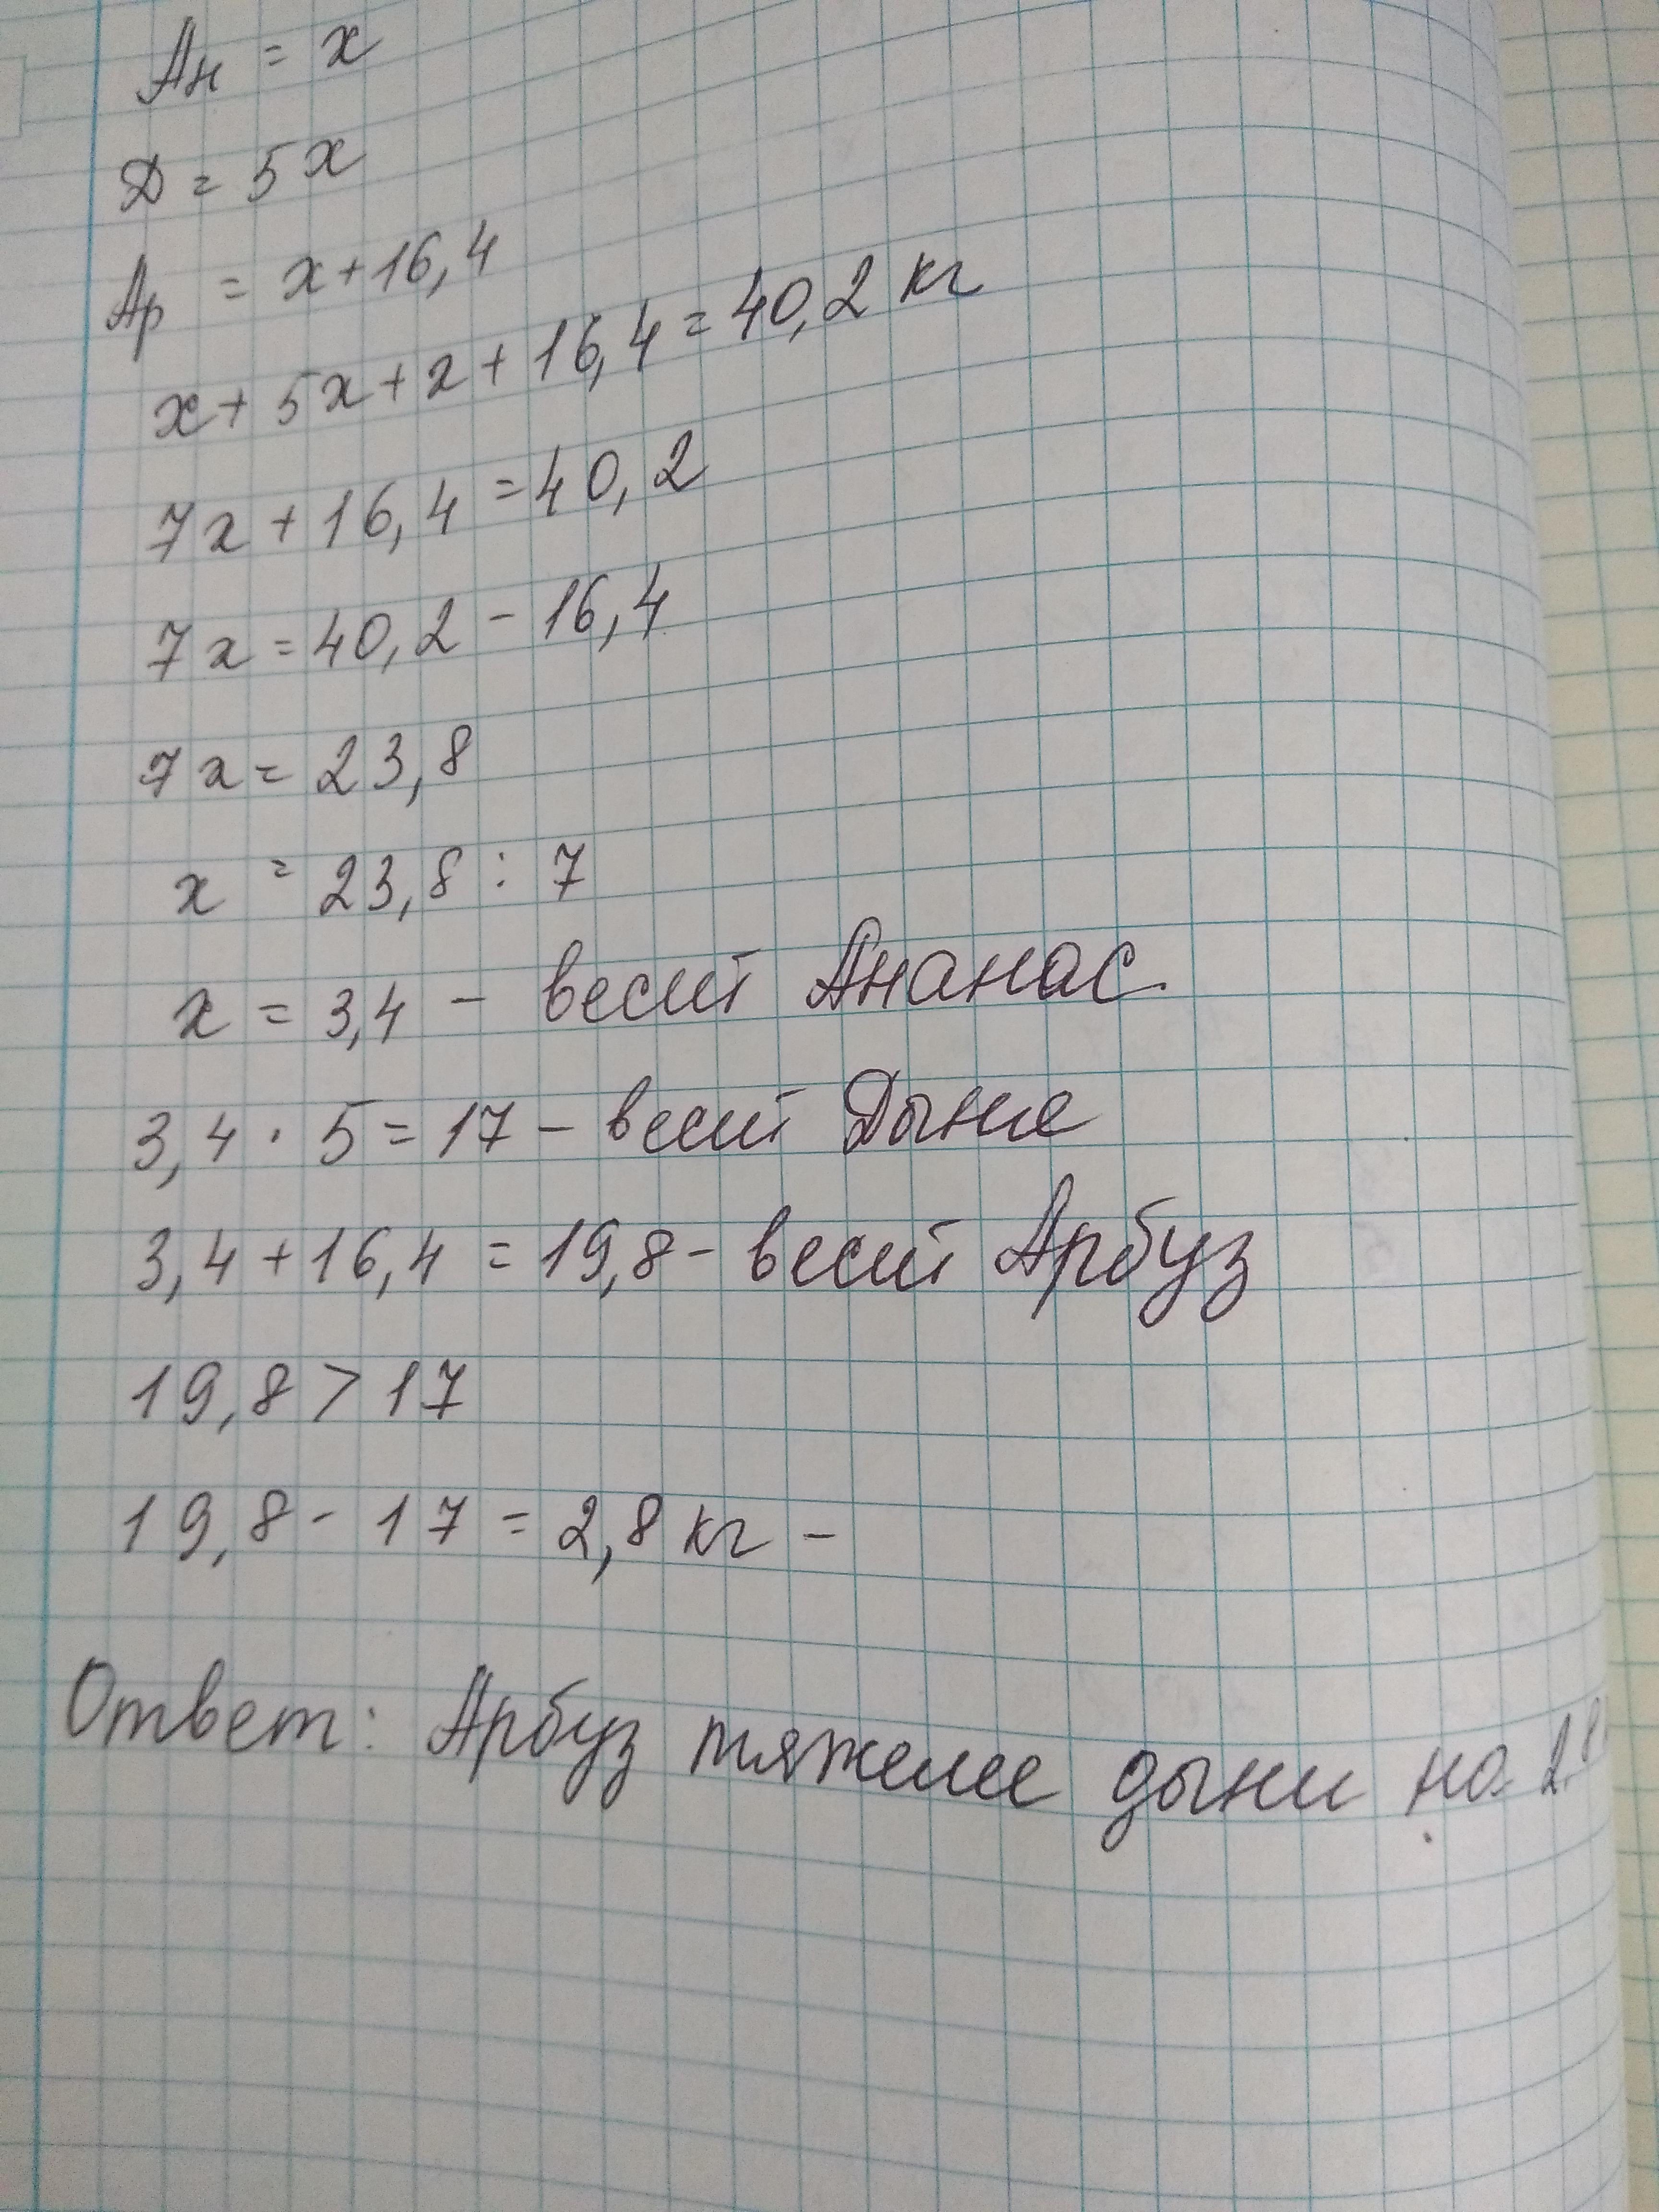 Ан = x
Д = 5x
Ар = x+16,4
x+5x+x+16,4=40,2 кг
7x+16,4=40,2
7x=40,2-16,4
7x=23,8
x=23,8:7
x=3,4 - весит Ананас.
3,4·5=17 - весит Дыня
3,4+16,4=19,8 - весит Арбуз
19,8>17
19,8-17=2,8 кг -
Ответ: Арбуз тяжелее дыни на